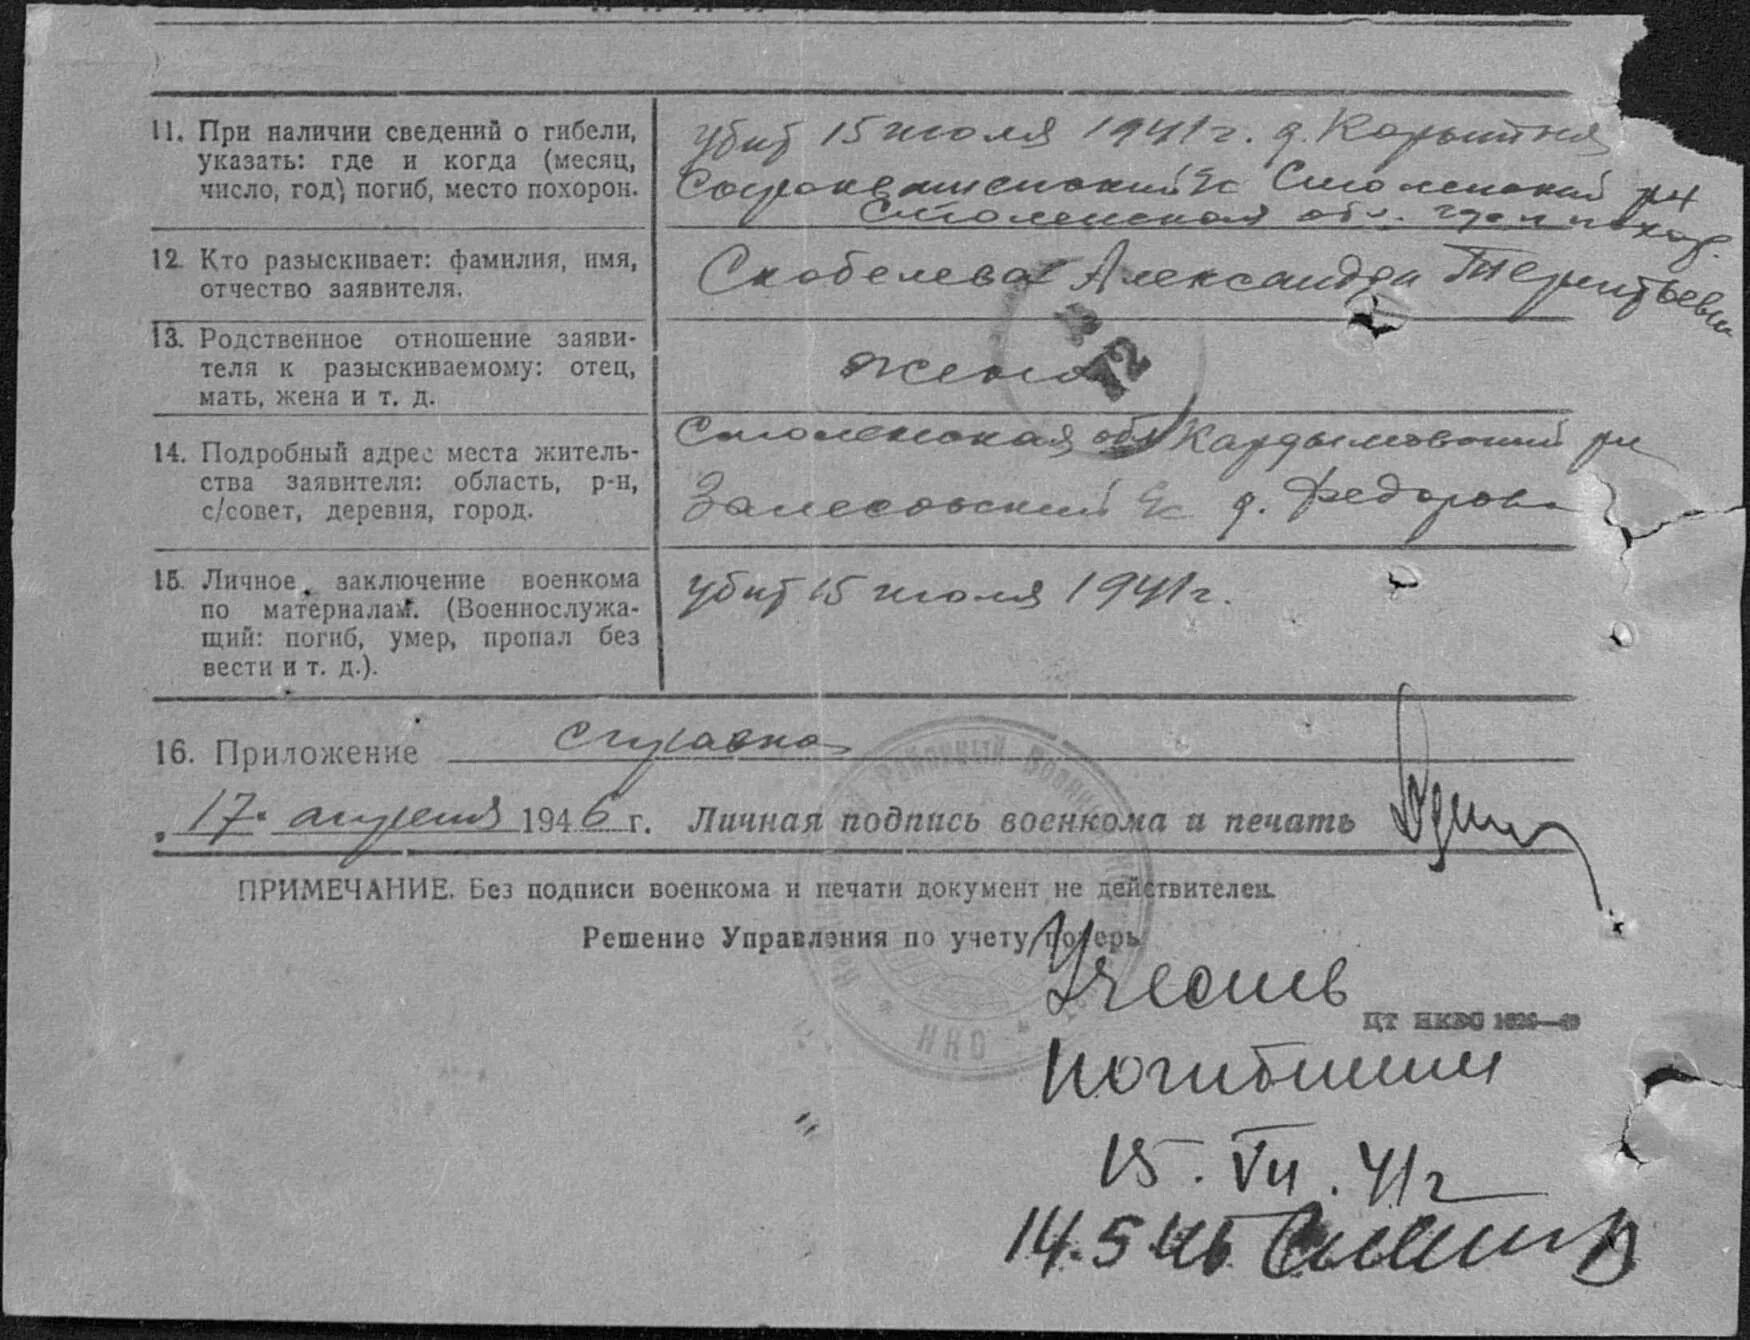 11. При наличии сведений о гибели,
указать: где и когда (месяц,
число, год) погиб, место похорон.
убит 15 июля 1941 г. д. Корытня
с/с Смоленский рн
Смоленская обл. где и похор.
12. Кто разыскивает: фамилия, имя,
отчество заявителя.
Скобелева Александра Терентьевна
13. Родственное отношение заяви-
теля к разыскиваемому: отец,
мать, жена и т. д.
жена
12
14. Подробный адрес места житель-
ства заявителя: область, р-н,
с/совет, деревня, город.
Смоленская обл Кардымовский рн
Залесовский с/с д. Федорово
15. Личное заключение военкома
по материалам. (Военнослужа-
щий: погиб, умер, пропал без
вести и т. д.).
убит 15 июля 1941 г.
16. Приложение справка
17. апреля 1946 г. Личная подпись военкома и печать
ПРИМЕЧАНИЕ. Без подписи военкома и печати документ не действителен.
Решение Управления по учету потерь
Районный Военный
НКО
Учесть
ЦТ НКВС
погибшим
15. VII. 41 г
14.5 46